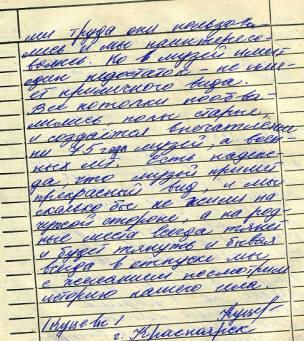 ми труда они пользова-
лись мы наинтересо-
вались. Но в музей имеет
один недостаток - не име-
ет приличного вида.
Все потолки пообва-
лились полы старые,
и создаётся впечатление
ни 45 года музей, а воен-
ных лет. Есть надеж-
да, что музей примет
прекрасный вид, и мы
сколько бы не жили на
чужой стороне, а на род-
ные места всегда тянет
и будет тянуть и бывая
всегда в отпуске мы
с желанием посмотрим
историю нашего села.
/Куцев/ Куцев-
г. Красноярск